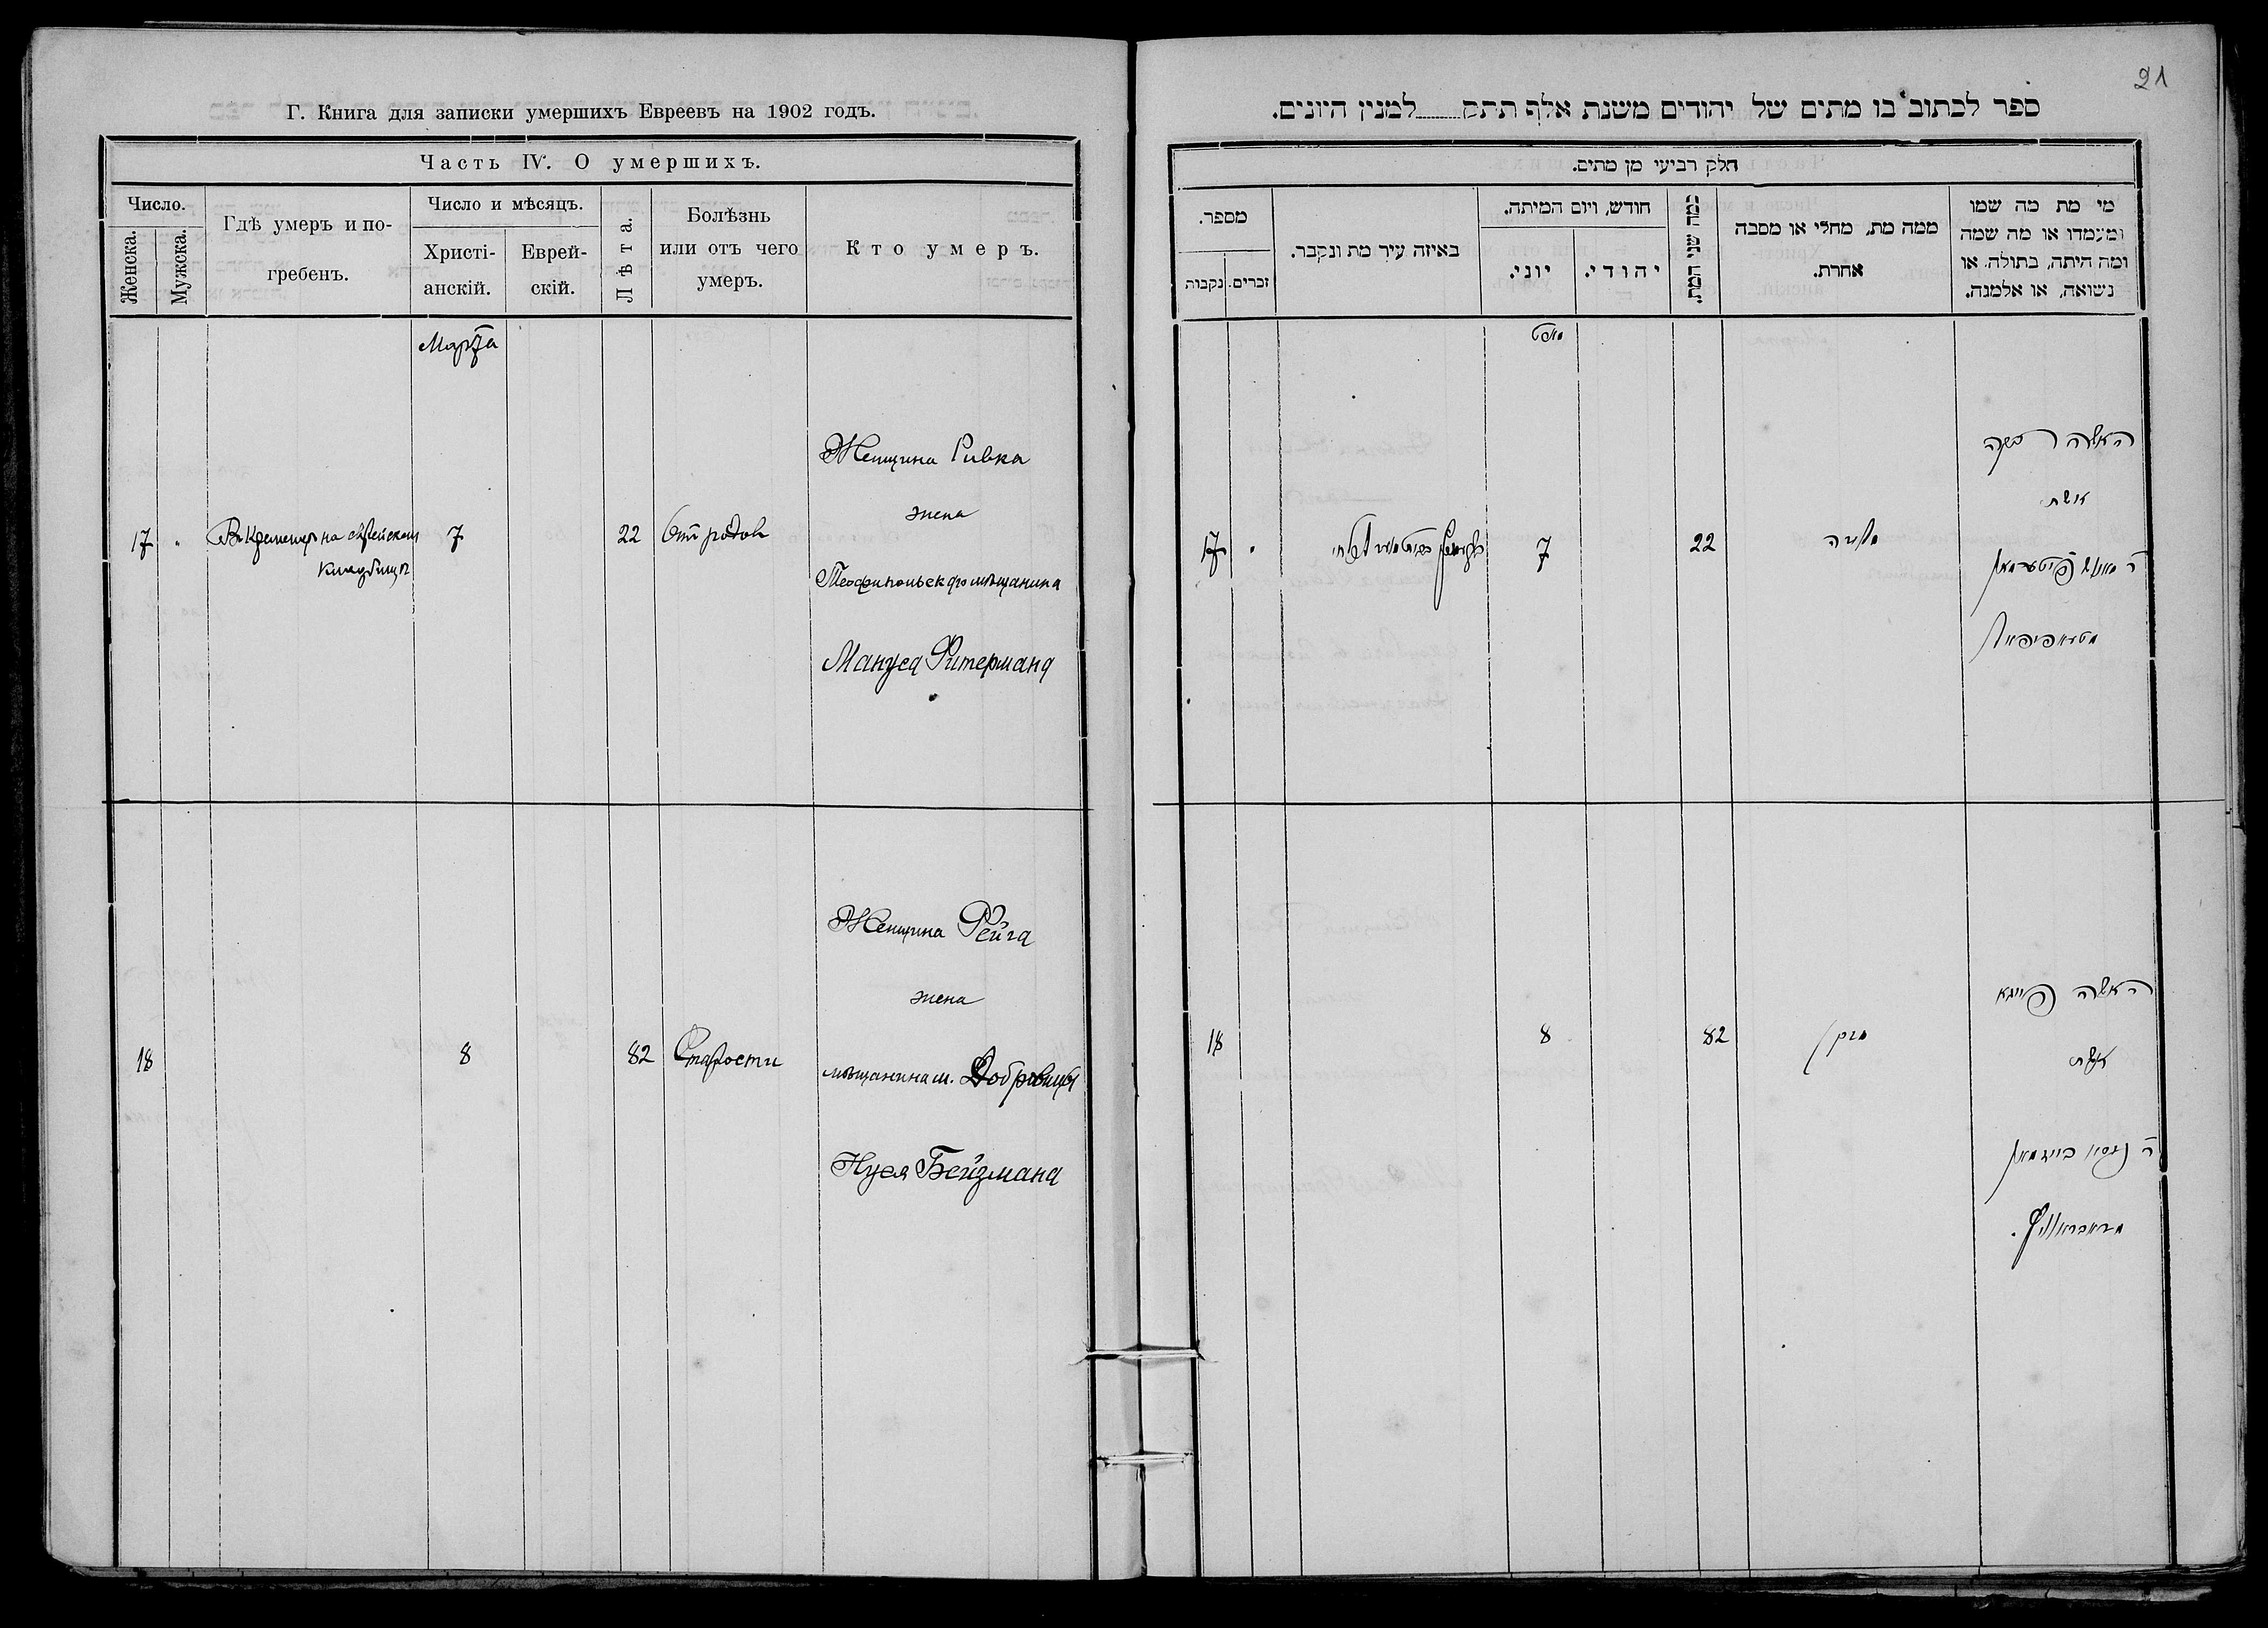 Г. Книга для записки умершихъ Евреевъ на 1902 годъ.
Часть IV. О умершихъ.
Число.
Женска.
Мужска.
Гдѣ умеръ и по-
гребенъ.
Число и мѣсяцъ.
Христі-
анскій.
Еврей-
скій.
Лѣта.
Болѣзнь
или отъ чего
умеръ.
Кто умеръ.
Марта
17
Въ Кременцѣ на еврейскомъ
кладбищѣ
7
22
Отъ родовъ
Женщина Ривка
жена
мѣщанина
Мануса Фитермана
18
8
82
Старости
Женщина Фейга
жена
мѣщанина м.
Нуся Бейзмана
21
ספר לכתוב בו מתים של יהודים משנת אלף תתק למנין היונים.
חלק רביעי מן מתים.
מספר.
נקבות
זכרים.
באיזה עיר מת ונקבר.
חודש, ויום המיתה.
יוני.
יהודי.
כמה שני המת.
ממה מת, מחלי או מסבה
אחרת.
מי מת מה שמו
ומעמדו או מה שמה
ומה היתה, בתולה, או
נשואה, או אלמנה.
מארט
17
7
22
האשה רבקה
אשת
18
8
82
זקן
האשה פייגא
אשת